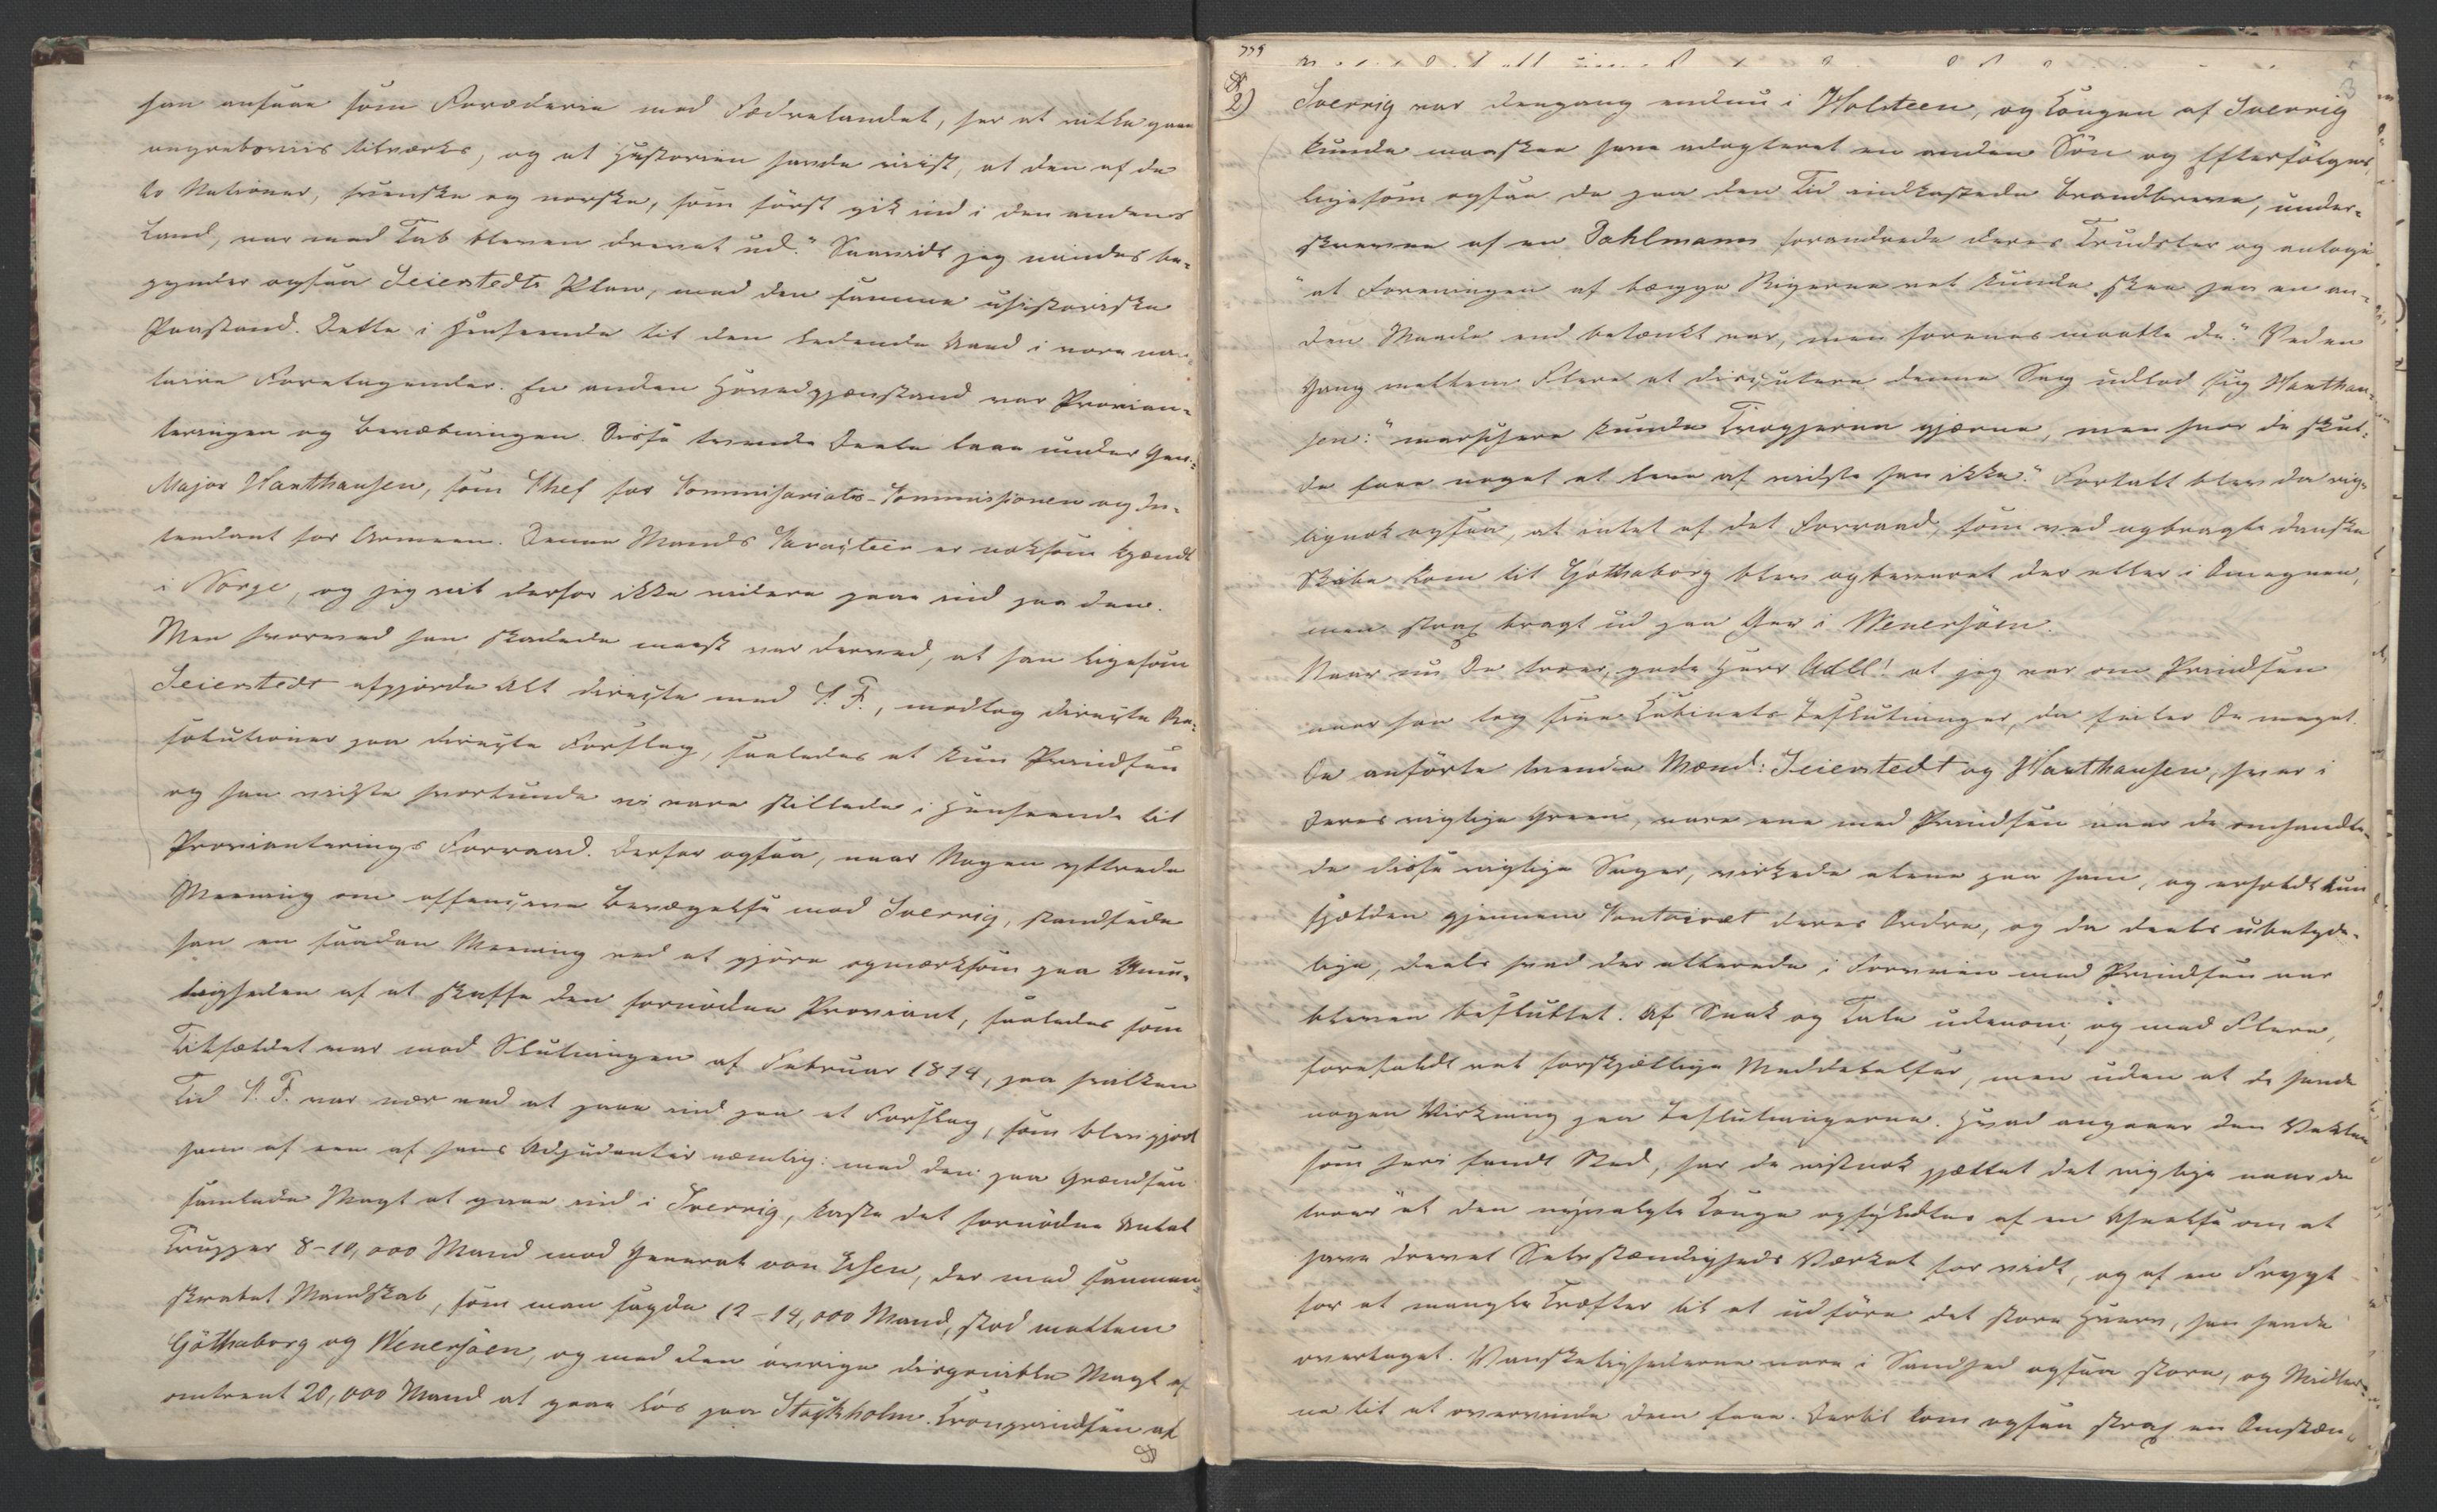 han ansaae som Forræderie mod Fædrelandet, her at ville gaae
angrebsviis tilværks, og at Historien havde viist, at den af de
to Nationer, svenske og norske, som først gik ind i den andens
Land, var med Tab bleven drevet ud." Saavidt jeg mindes be-
gynder ogsaa Seierstedts Plan, med den samme uhistoriske
Paastand. Dette i Henseende til den ledende Aand i vore
taire Foretagender. En anden Hovedgjenstand var Provian-
teringen og Bevæbningen. Disse tvende Deele laae under Gen:
Major Haxthausen, som Chef for Commisariats-Commissionen og In-
tendant for Armeen. Denne Mands Karacteer er noksom kjendt
i Norge, og jeg vil derfor ikke videre gaae ind paa den.
Men hvorved han skadede meest var derved, at han ligesom
Seierstedt afgjorde Alt directe med C. F., modtog directe Re-
solutioner paa directe Forslag, saaledes at kun Prindsen
og han vidste hvorlunde vi vare stillede i Henseende til
Provianterings Forraad. Derfor ogsaa, naar Nogen yttrede
Meening om offensive Bevægelse mod Sverrig, standsede
han en saadan Meening ved at gjøre opmærksom paa Umu-
ligheden af at skaffe den fornødne Proviant, saaledes som
Tilfældet var mod Slutningen af Februar 1814, paa hvilken
Tid C. F. var nær ved at gaae ind paa et Forslag, som blev gjort
ham af een af hans Adjudanter nemlig: med den paa Grændsen
samlede Magt at gaae ind i Sverrig, kaste det fornødne Antal
Tropper 8-10,000 Mand mod General von Essen, der med sammen-
skrabet Mandskab, som man sagde 12-14,000 Mand, stod mellem
Göthaborg og Wenersöen, og med den øvrige disponible Magt af
omtrent 20,000 Mand at gaae løs paa Stockholm. Kronprindsen af
2)
3
Sverrig var dengang endnu i Holsteen, og Kongen af Sverrig
kunde maaskee have adopteret en anden Søn og Efterfølger,
ligesom ogsaa de paa den Tid indkastede Brandbreve, under-
skrevne af en Dahlmann forandrede deres Trudsler og antoge
"at Foreningen af begge Rigerne vel kunde skee paa en an-
den Maade end betænkt var, men forenes maatte de." Ved en
Gang mellem Flere at discutere denne Sag udlod sig Haxthau-
sen: "marschere kunde Tropperne gjerne, men hvor de skul-
de faae noget at leve af vidste han ikke." Fortalt blev da rig-
tignok ogsaa, at intet af det Forraad, som ved opbragte danske
Skibe kom til Gothaborg blev opbevaret der eller i Omegnen,
men strax bragt ud paa Øer i Wenersöen.
Naar nu De troer, gode Herr Aall! at jeg var om Prindsen
naar han tog sine Cabinets Beslutninger, da feiler De meget.
De anførte tvende Mænd: Seierstedt og Haxthausen, hver i
deres vigtige Green, vare ene med Prindsen naar de omhandle-
de disse vigtige Sager, virkede alene paa ham, og erholdt kun
sjælden gjennem Contoiret deres Ordre, og da deels ubetyde-
lige, deels hvad der allerede i Forveien med Prindsen var
bleven besluttet. Af Snak og Tale udenom, og med Flere,
foreholdt vel forskjellige Meddelelser, men uden at de havde
nogen Virkning paa Beslutningerne. Hvad angaaer den Vaklen
som heri fandt Sted, har De vistnok gjættet det rigtige naar De
troer "at den nyvalgte Konge opfyldtes af en Ahnelse om at
have drevet Selvstændigheds Værket for vidt, og af en Frygt
for at mangle Kræfter til at udføre det store Hverv, han havde
overtaget. Vanskelighederne vare i Sandhed ogsaa store, og Midler-
ne til at overvinde dem faae. Dertil kom ogsaa strax en Omstæn-